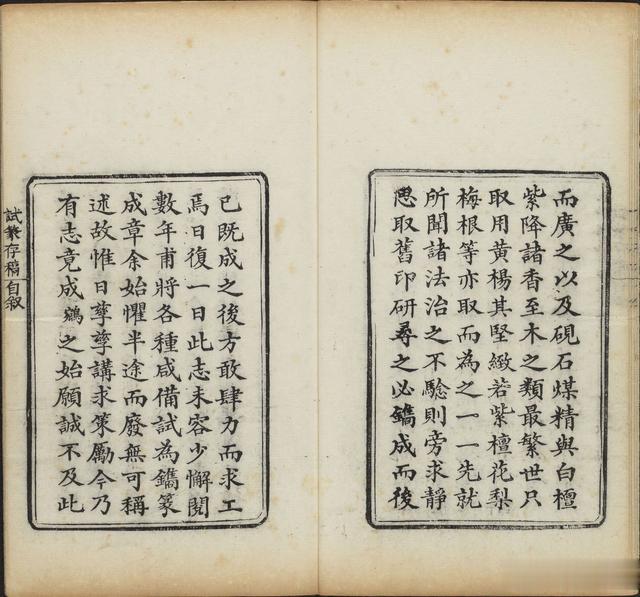 而廣之以及硯石煤精與白檀
紫降諸香至木之類最繁世只
取用黄楊其堅緻若紫檀花梨
梅根等亦取而為之一一先就
所聞諸法治之不騐則旁求靜
思取舊印研尋之必鐫成而後
已既成之後方敢肆力而求工
焉日復一日此志未容少懈閱
數年甫將各種咸備試為鐫篆
成章余始懼半途而廢無可稱
述故惟日孳孳講求策勵今乃
有志竟成鵷之始願誠不及此
試篆存稿自叙